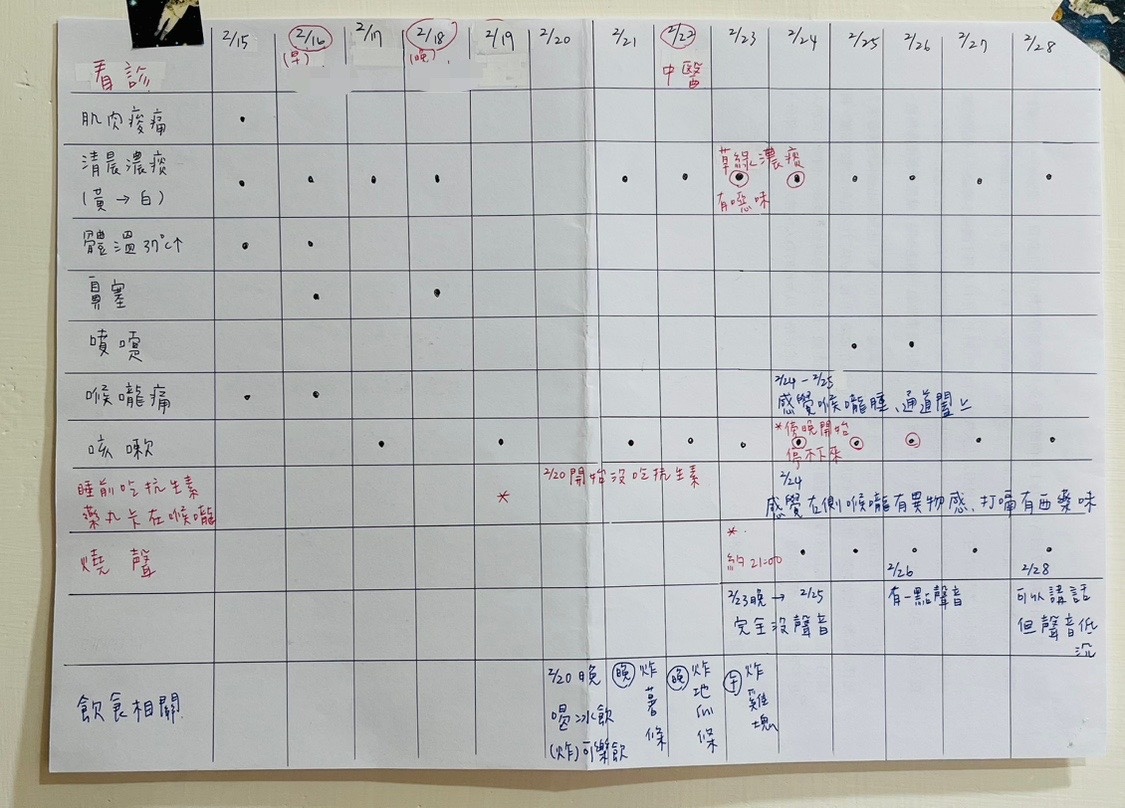 2/15 2/16 2/17 2/18 2/19 2/20 2/21 2/22 2/23 2/24 2/25 2/26 2/27 2/28
看診 (早) (晚) 中醫
肌肉痠痛
清晨濃痰
(黃→白)
草綠濃痰
有噁味
體溫37℃↑
鼻塞
噴嚏
喉嚨痛
2/24 - 2/25
感覺喉嚨腫、通道
咳嗽
*傍晚開始
停不下來
睡前吃抗生素
藥丸卡在喉嚨
*
2/20開始沒吃抗生素
2/24
感覺右側喉嚨有異物感、打嗝有西藥味
燒聲
*
約21:00
2/26
有一點聲音
2/28
可以講話
但聲音低
沉
2/23晚→2/25
完全沒聲音
飲食相關
2/20晚
喝冰飲
(炸)可樂飲
晚 炸薯條
晚 炸地瓜條
午 炸雞塊